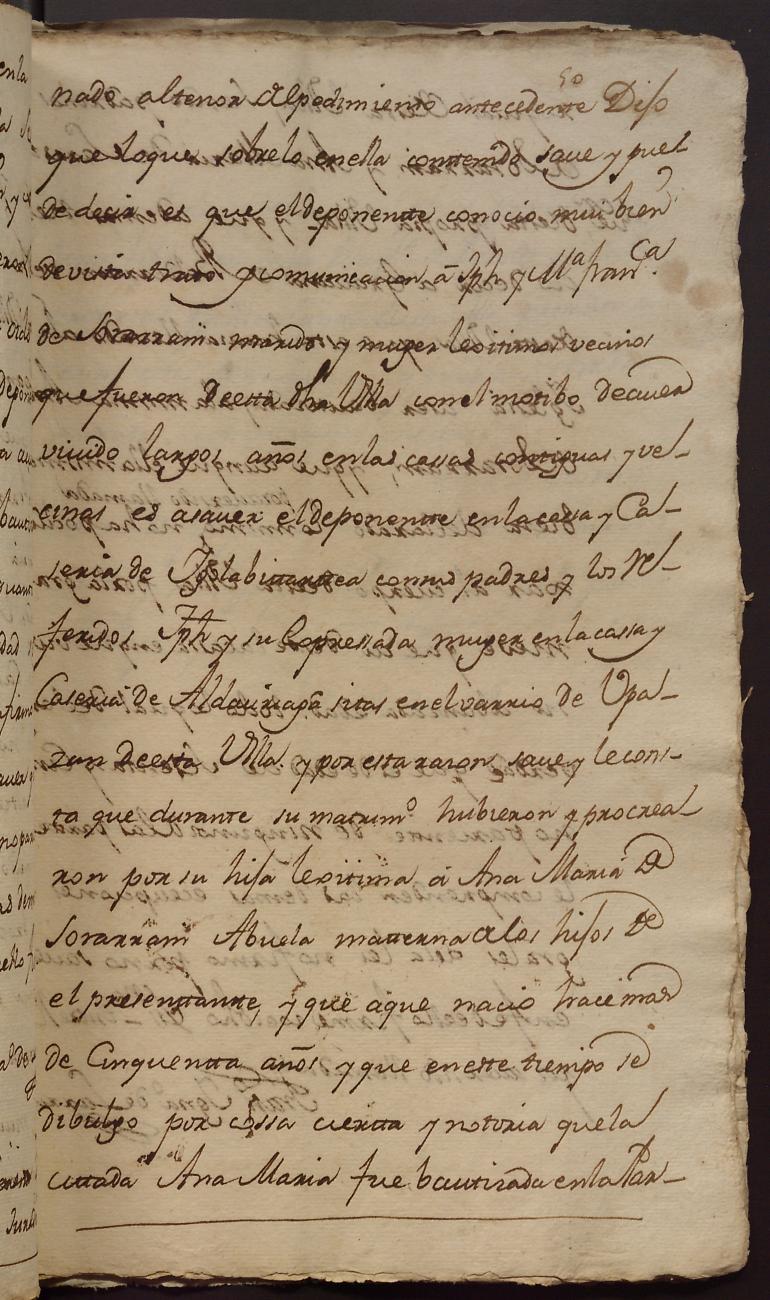 nado al tenor del pedimiento antecedente Dijo
que loque sobre lo enella conttenido save y pue-
de decir es que el deponentte conocio mui bien
de vista tratto y comunicacion á Jph y Mª franca
de Sorarrain marido y muger lexitimos vecinos
que fueron de esta dha Villa con el motibo de aver
vivido largos años en las cassas contiguas y ve-
cinas es asaver el deponentte en la cassa y Ca-
seria de con sus padres y los re-
feridos Jph y su expressada muger en la cassa y
Caseria de Aldauriaga sitas en el varrio de Vpa-
zan de esta Villa. y por esta razon save y le cons-
ta que durante su matrimº hubieron y procrea-
ron por su hija lexitima á Ana Maria de
Sorarrain Abuela matterna de los hijos de
el presenttante, y que aque nacio hace mas
de Cinquentta años y que en este tiempo se
dibulgo por cossa ciertta y notoria que la
cittada Ana Maria fue bautizada en la Par-